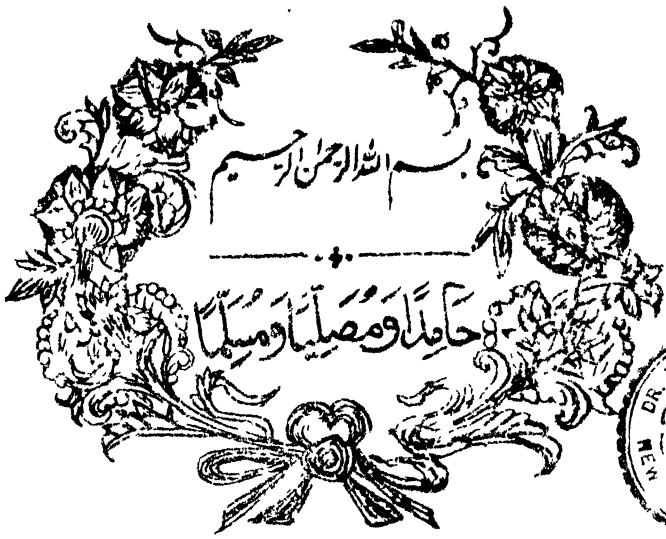 بسم الله الرحمن الرحيم
حَامِدًا وَمُصَلِّيًا وَمُسَلِّمًا
DR
NEW